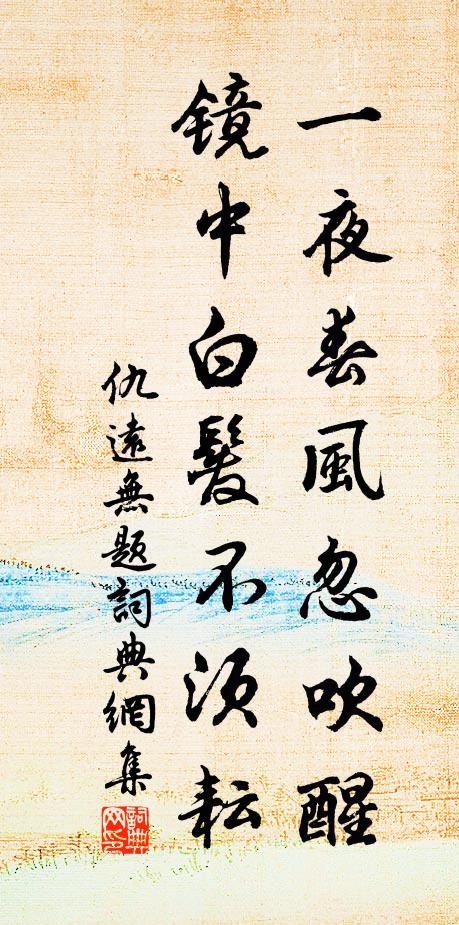 一夜春風忽吹醒
镜中白髮不须耘
仇遠無题詞典網集
詞典网印